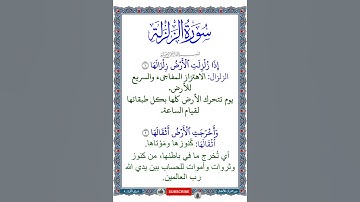 سورة الزلزلة
إِذَا زُلْزِلَتِ ٱلْأَرْضُ زِلْزَالَهَا ١
الزلزال: الاهتزاز المفاجىء والسريع
للأرض.
يوم تتحرك الأرض كلها بكل طبقاتها
لقيام الساعة.
وَأَخْرَجَتِ ٱلْأَرْضُ أَثْقَالَهَا ٢
أَثْقَالَهَا: كُنوزها ومَوْتاها.
أي تُخرج ما في باطنها، من كنوز
وثروات وأموات للحساب بين يدي الله
رب العالمين.
SUBSCRIBE